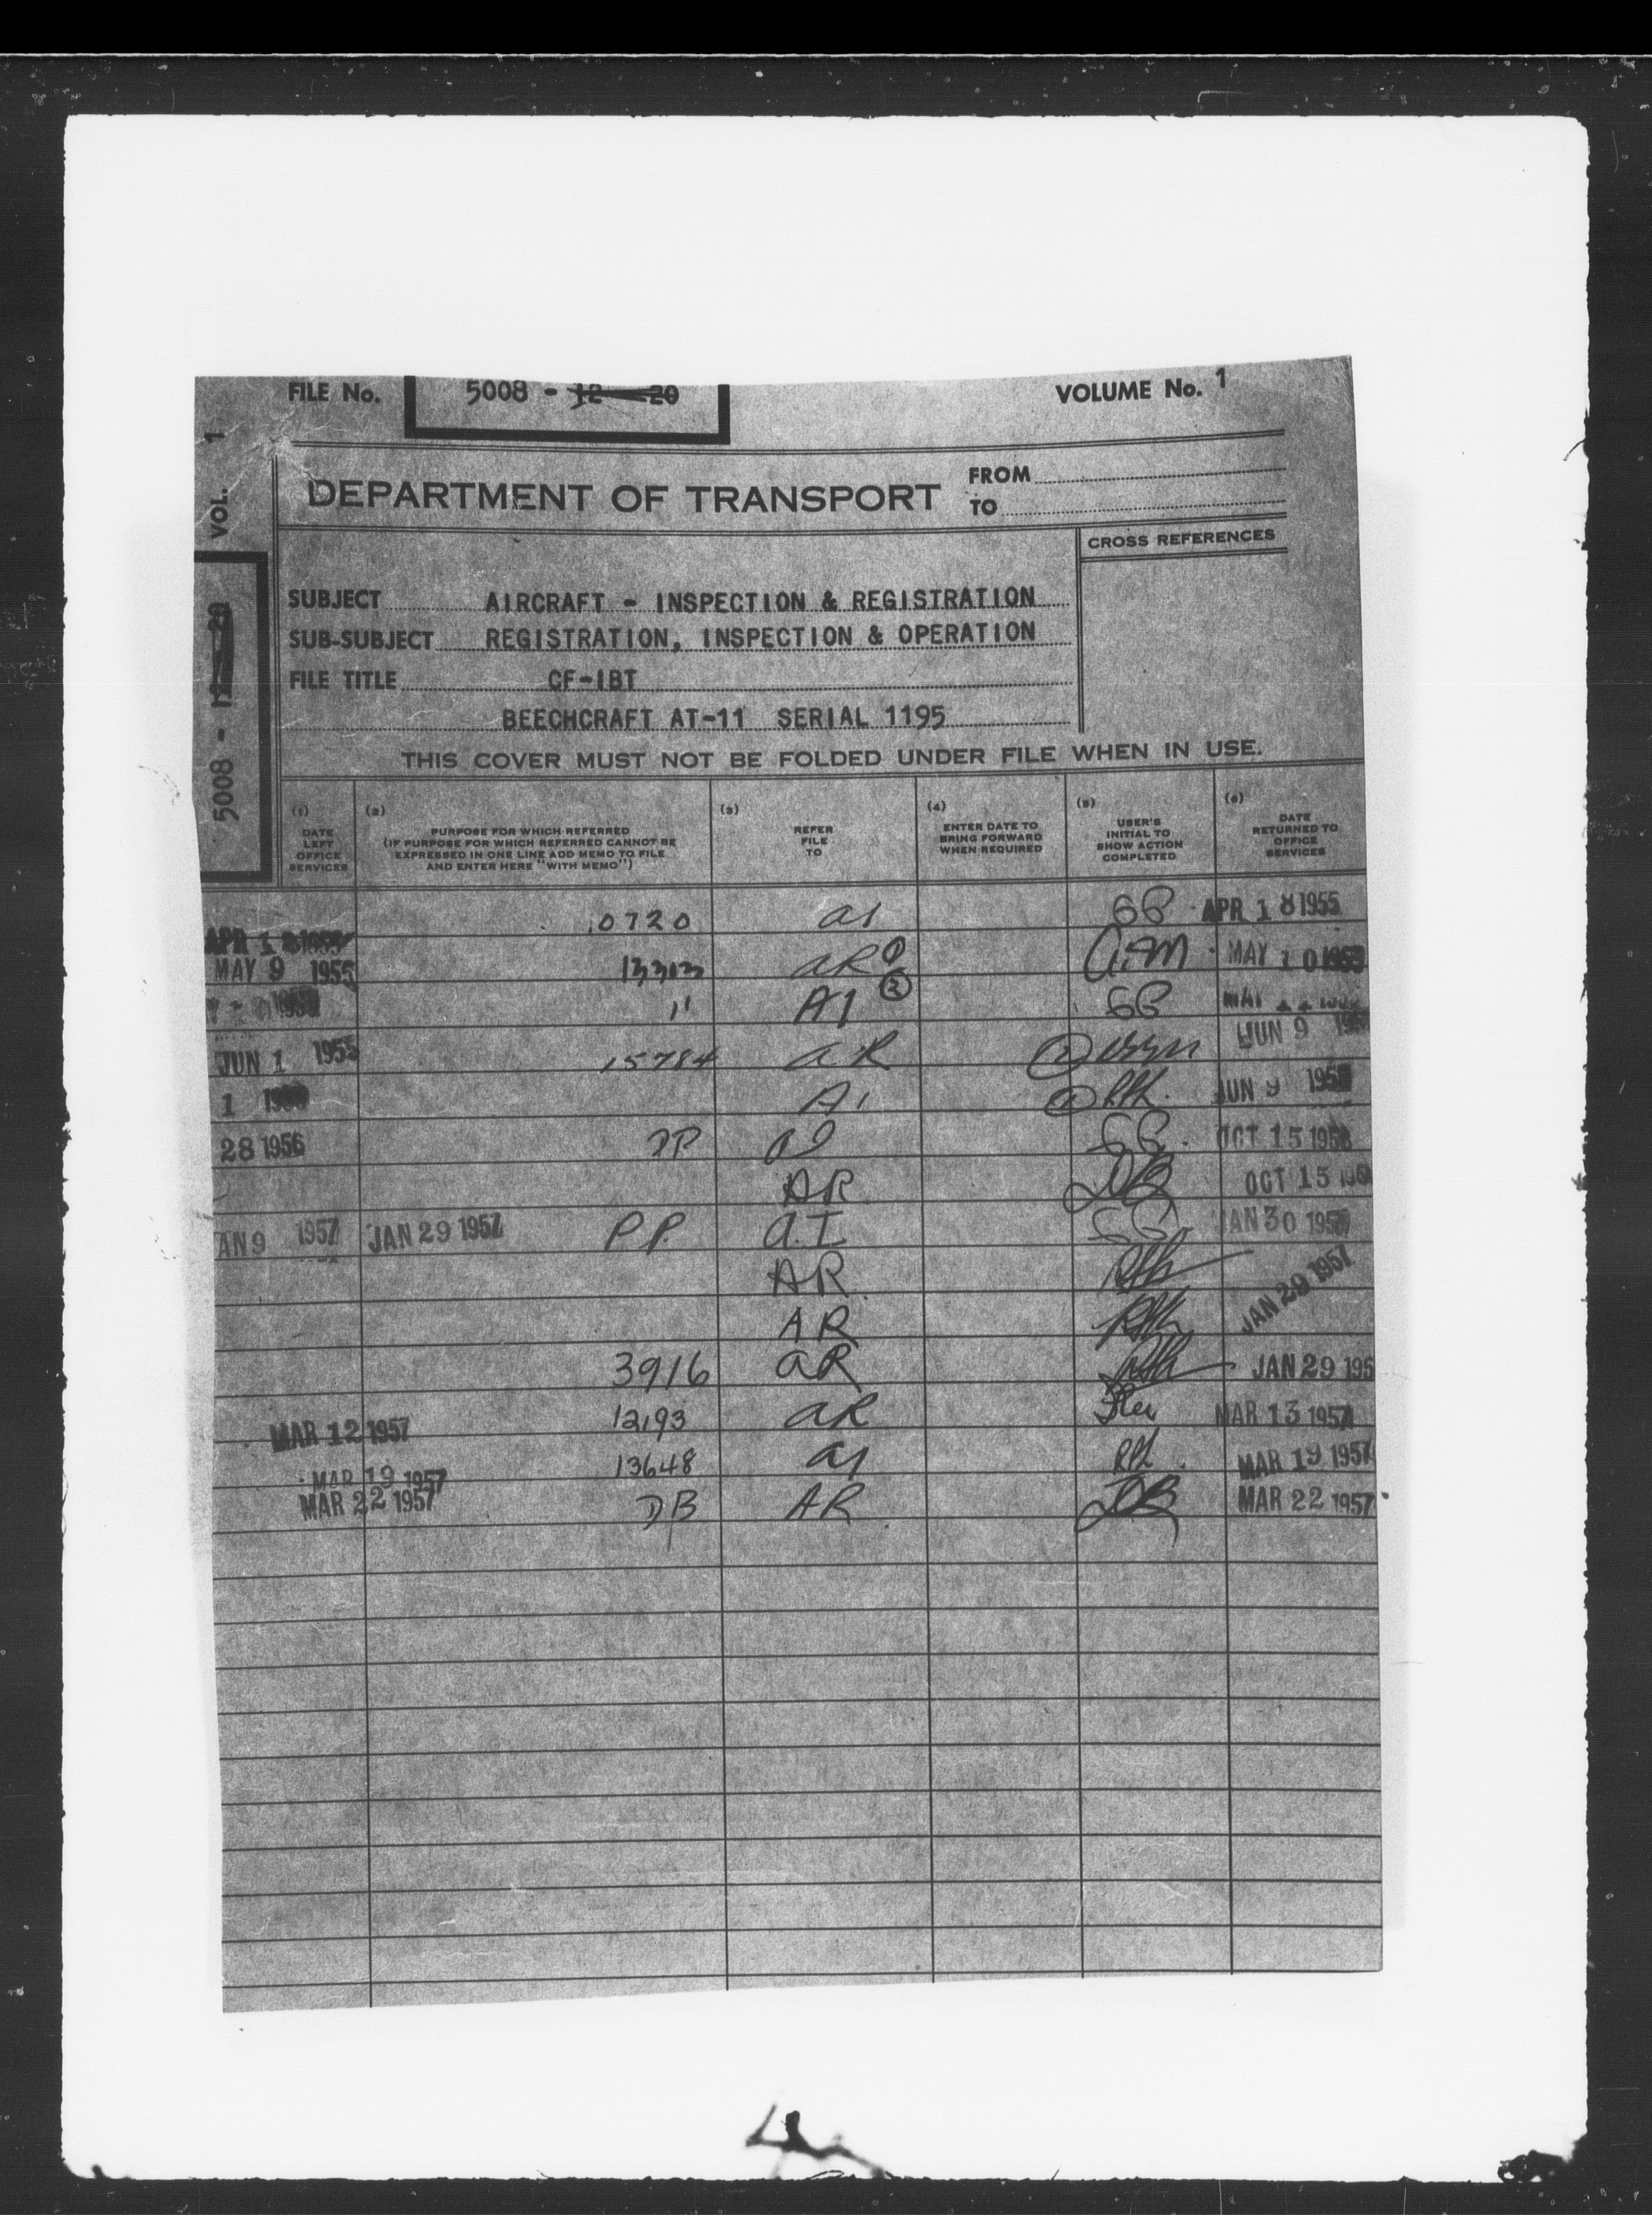 FILE No. 5008 - 12 20 VOLUME No. 1
VOL. 1
5008 -
DEPARTMENT OF TRANSPORT
FROM
TO
CROSS REFERENCES
SUBJECT AIRCRAFT - INSPECTION & REGISTRATION
SUB-SUBJECT REGISTRATION, INSPECTION & OPERATION
FILE TITLE CF-IBT
BEECHCRAFT AT-11 SERIAL 1195
THIS COVER MUST NOT BE FOLDED UNDER FILE WHEN IN USE.
(1)
DATE
LEFT
OFFICE
SERVICES
(2)
PURPOSE FOR WHICH REFERRED
(IF PURPOSE FOR WHICH REFERRED CANNOT BE
EXPRESSED IN ONE LINE ADD MEMO TO FILE
AND ENTER HERE "WITH MEMO")
(3)
REFER
FILE
TO
(4)
ENTER DATE TO
BRING FORWARD
WHEN REQUIRED
(5)
USER'S
INITIAL TO
SHOW ACTION
COMPLETED
(6)
DATE
RETURNED TO
OFFICE
SERVICES
APR 18 10720 AI GB APR 18 1955
MAY 9 1955 13303 AR 1 MAY 10
" AI 2 GB
JUN 1 1955 15784 AR JUN 9
1 AI JUN 9
28 1956 OCT 15
AR DB OCT 15
AN 9 1957 JAN 29 1957 P.P. A.I JAN 30 1957
AR JAN 29 1957
AR
3916 AR JAN 29 195
MAR 12 1957 12193 AR MAR 13 1957
MAR 19 1957 13648 AI MAR 19 1957
MAR 22 1957 DB AR DB MAR 22 1957